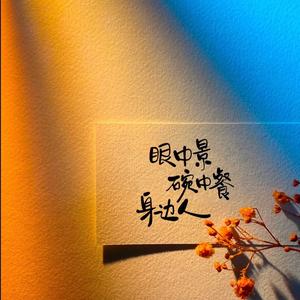 眼中景
碗中餐
身边人